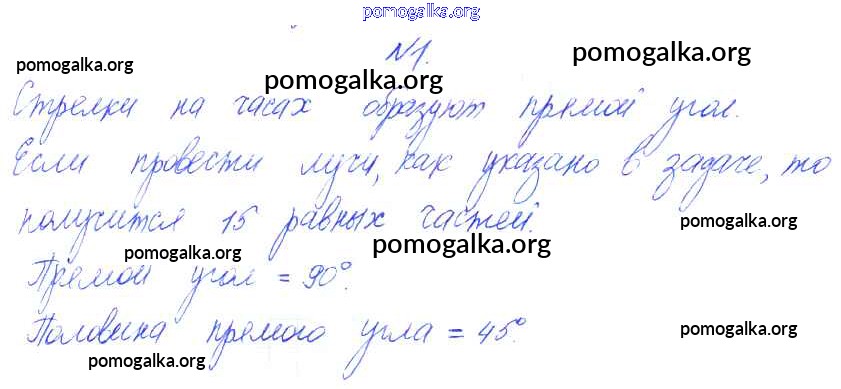 pomogalka.org
N1.
pomogalka.org
pomogalka.org
pomogalka.org
Стрелки на часах образуют прямой угол.
Если провести лучи, как указано в задаче, то
получится 15 равных частей.
pomogalka.org
pomogalka.org
pomogalka.org
Прямой угол = 90°.
Половина прямого угла = 45°.
pomogalka.org
pomogalka.org